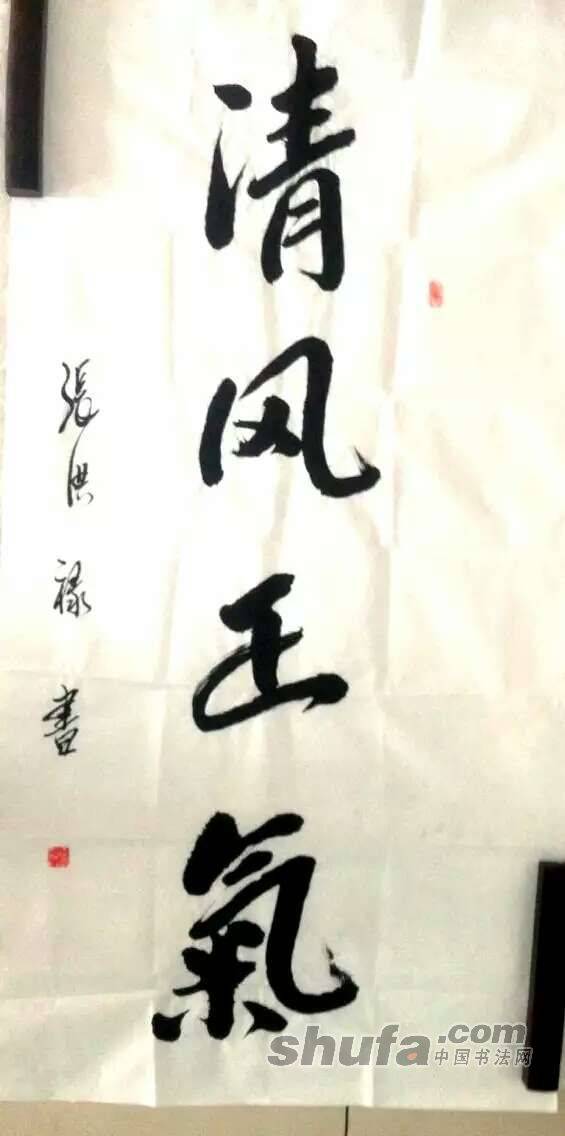 清风正氣
張洪禄書
shufa.com
中国书法网